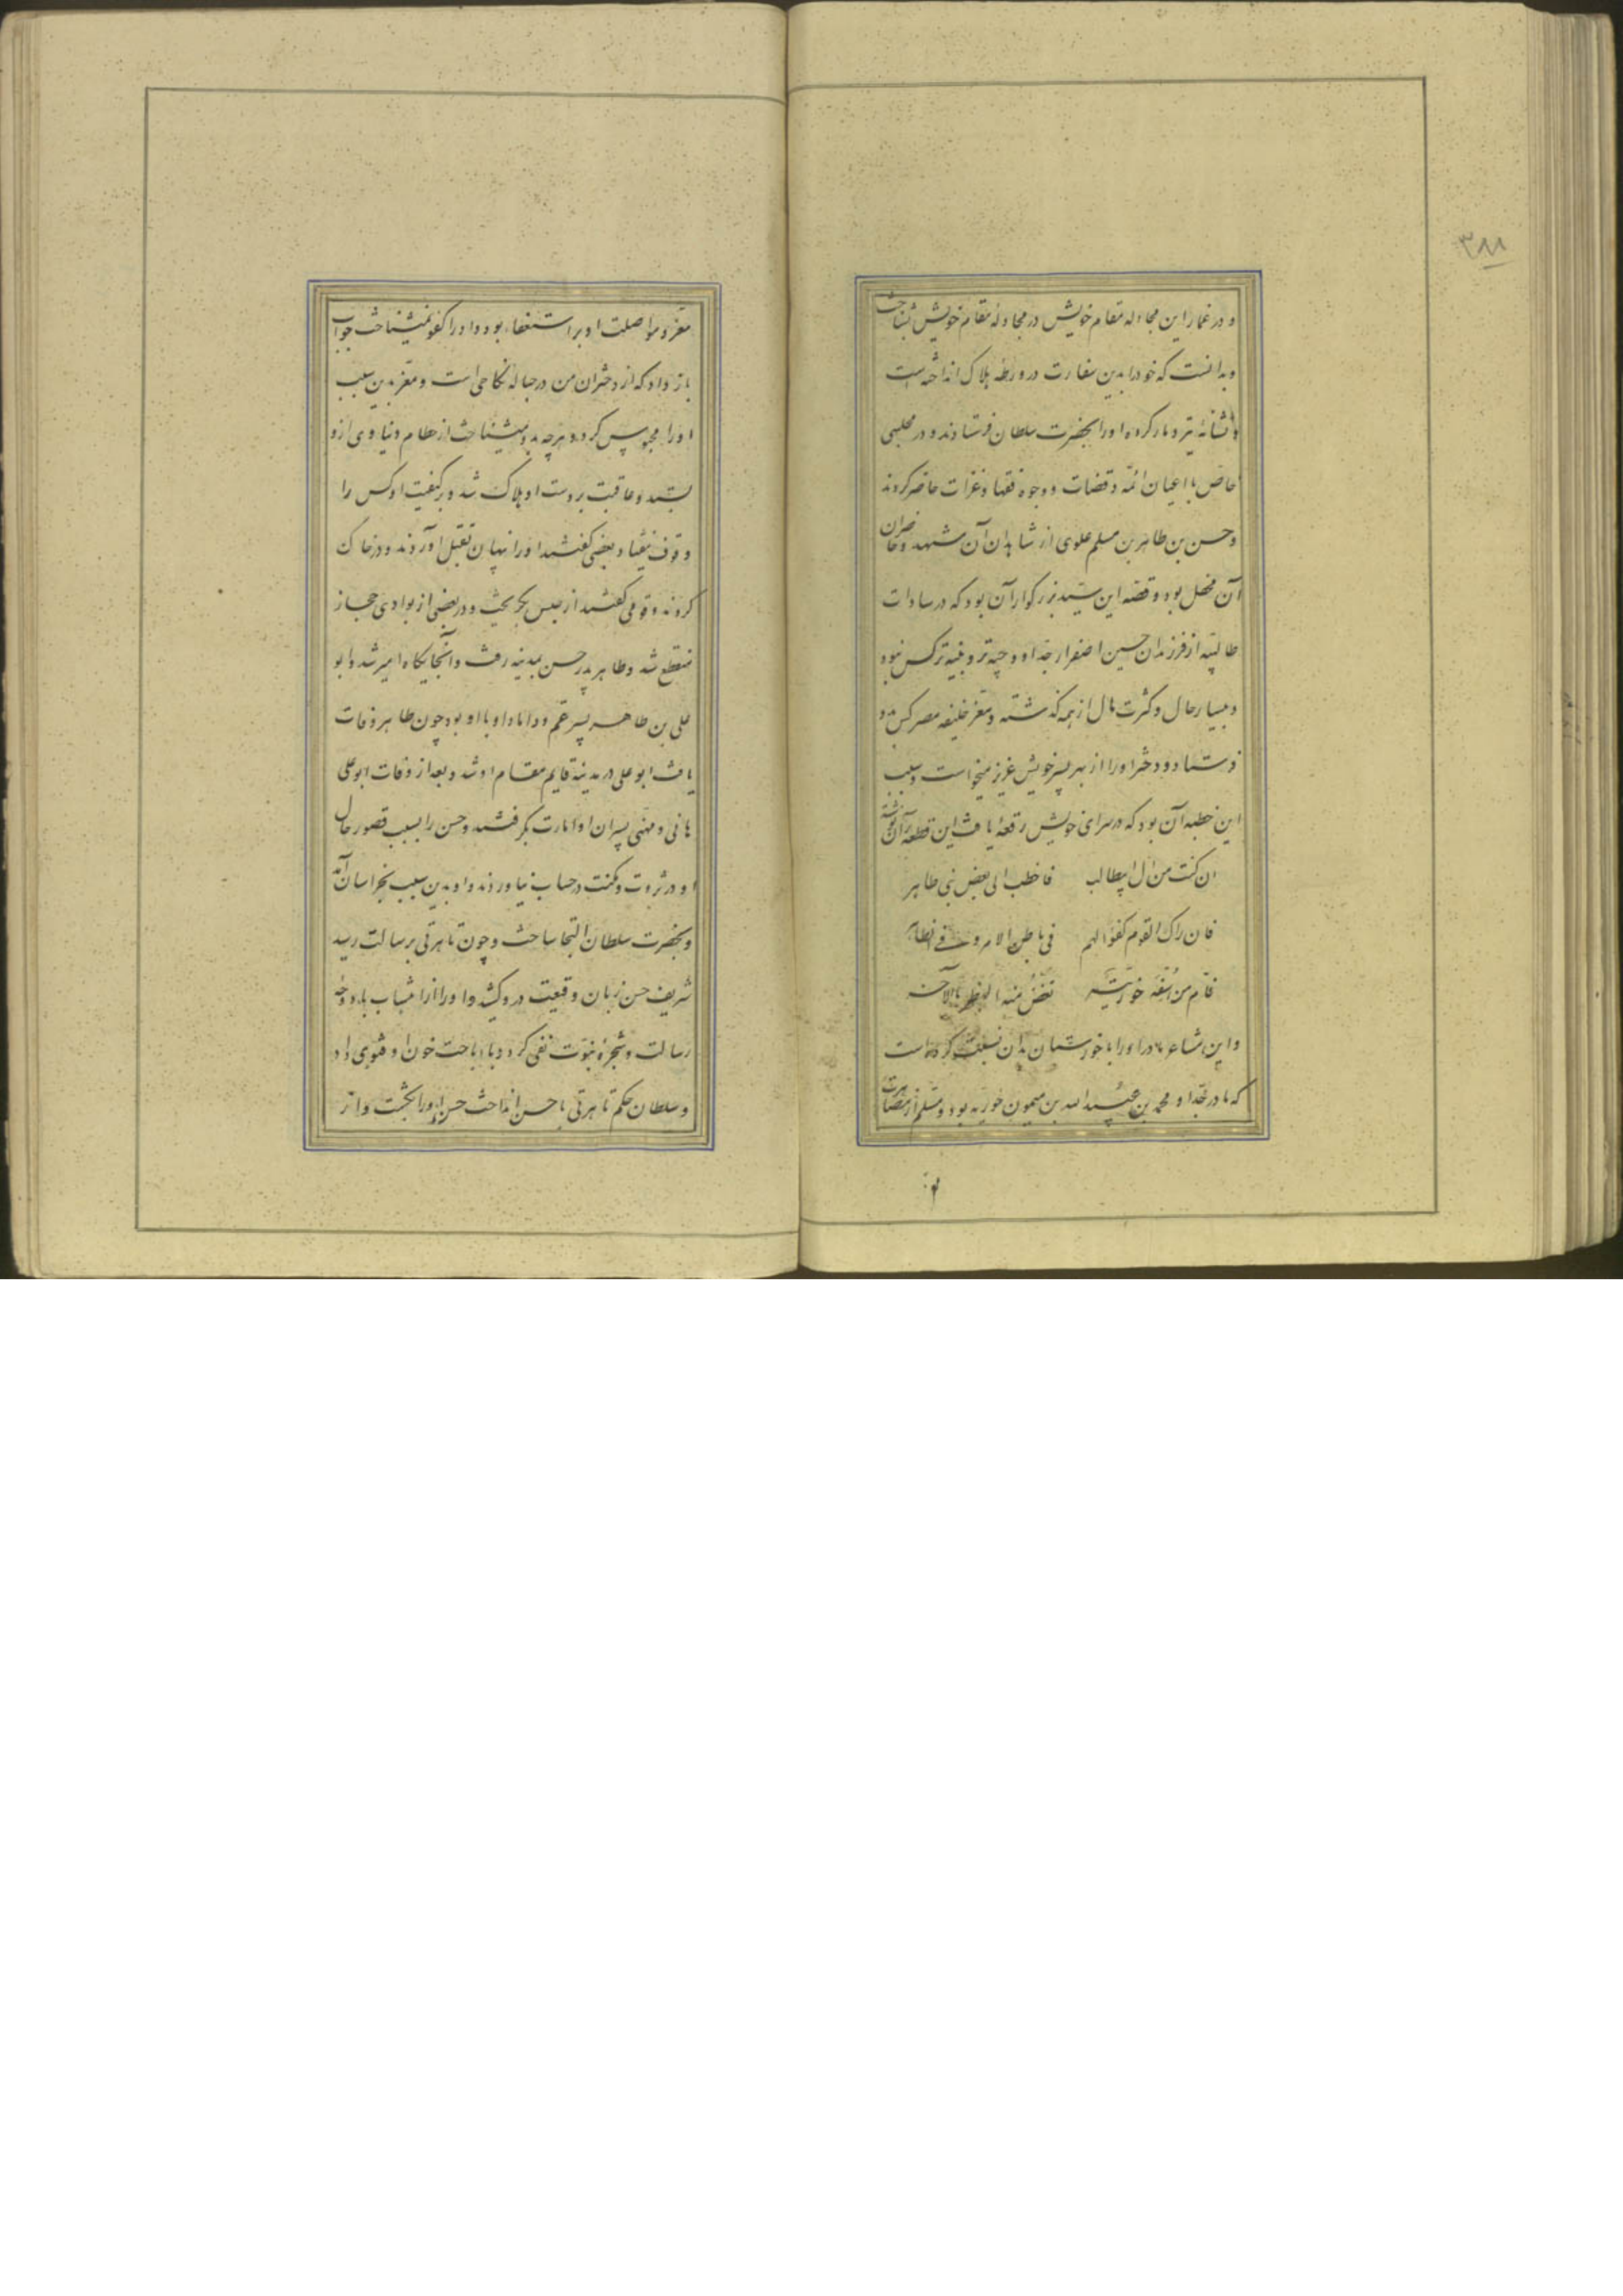 ۳۸۸
و در غمار این مجادله مقام خویش در مجادله مقام خویش بشناخت
و بدانست که خود را بدین سفارت در ورطه هلاک انداخته است
و نشانه تیر و مار کرده او را بحضرت سلطان فرستادند و در مجلسی
خاص با اعیان ائمه و قضات و وجوه فقها و غزات حاضر کردند
و حسن بن طاهر بن مسلم علوی از شاهدان آن مشهد و حاضران
آن محفل بود و قصه این سید بزرگوار آن بود که در سادات
طالبیه از فرزندان حسین اصغر از جد او وجیه تر و نبیه تر کس نبود
و بسیار حال و کثرت مال از همه گذشته و معز خلیفه مصر کس بدو
فرستاد و دختر او را از بهر پسر خویش عزیز میخواست و سبب
این خطبه آن بود که در سرای خویش رقعه یافت این قطعه بر آن نوشته
ان کنت من ال ابیطالب فاخطب الی بعض بنی طاهر
فان راک القوم کفوا لهم فی باطن الامر و فی الظاهر
فام من خوزیه تعض منه البظر بالآخر
و این شاعر مادر او را با خوزستان بدان نسبت کرده است
که مادر جد او محمد بن عبید الله بن میمون خوزیه بود و مسلم از مصاهرت
معز و مواصلت او بر استعفاء بود و او را کفو نمیشناخت جواب
باز داد که از دختران من در حباله نکاحی است و معز بدین سبب
او را محبوس کرد و هرچه بدو میشناخت از حطام دنیاوی ازو
بستد و عاقبت بر دست او هلاک شد و بر کیفیت او کس را
وقوف نیفتاد بعضی گفتند او را نهان بقتل آوردند و در خاک
کردند و قومی گفتند از حبس بگریخت و در بعضی از بوادی حجاز
منقطع شد و طاهر پدر حسن بمدینه رفت و آنجایگاه امیر شد و ابو
علی بن طاهر پسر عم و داماد او با او بود چون طاهر وفات
یافت ابو علی در مدینه قایم مقام او شد و بعد از وفات ابوعلی
هانی و مهنی پسران او امارت بگرفتند و حسن را بسبب قصور حال
او در ثروت و مکنت در حساب نیاوردند و او بدین سبب بخراسان آمد
و بحضرت سلطان التجا ساخت و چون تاهرتی برسالت رسید
شریف حسن زبان وقیعت در وکشید و او را از انتساب با دوحه
رسالت و شجره نبوت نفی کرد و باباحت خون او فتوی داد
و سلطان حکم تاهرتی با حسن انداخت حسن او را بکشت و از